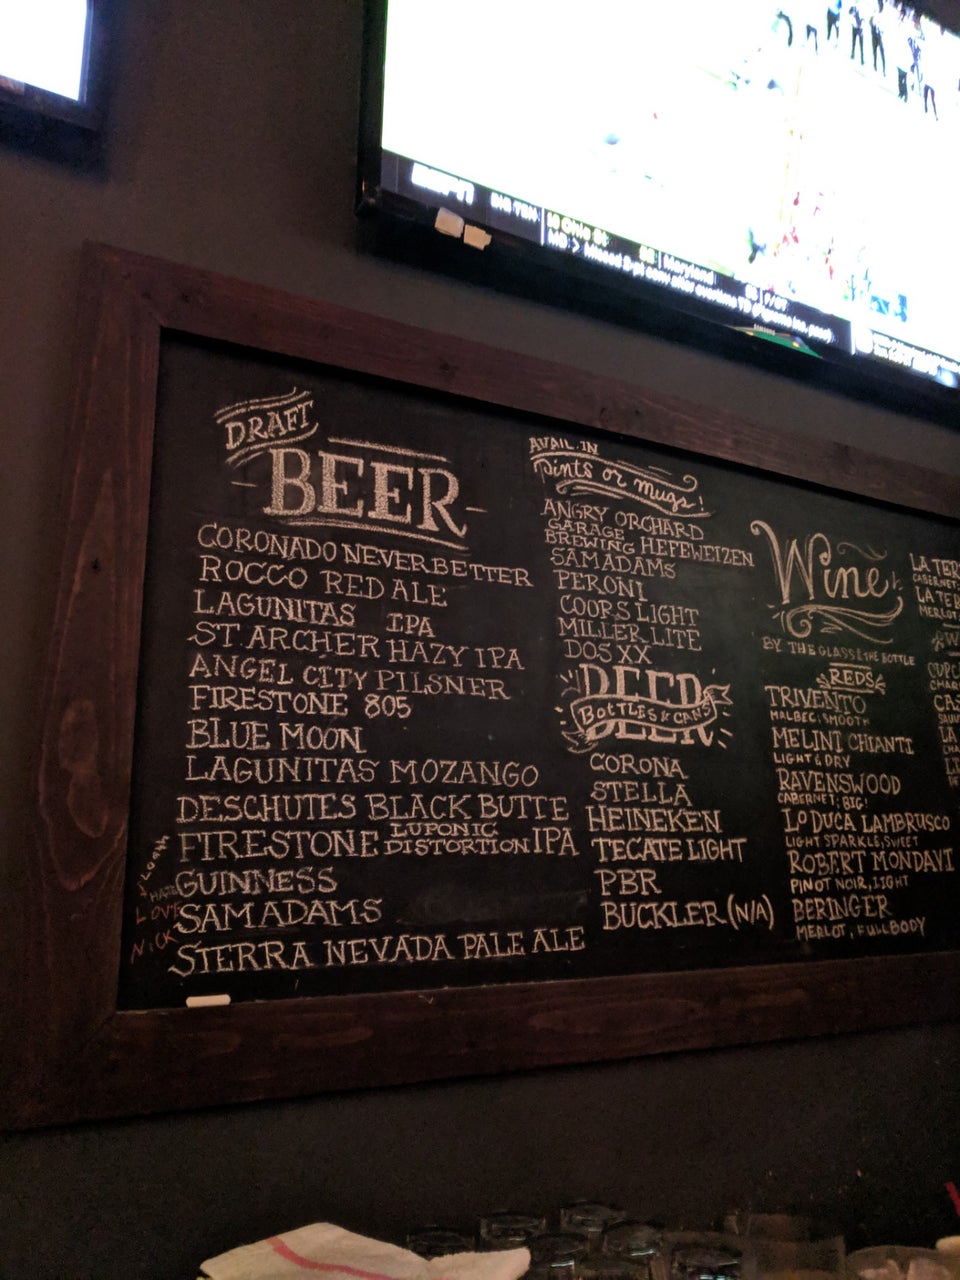 ESPN
BIG TEN
10 Ohio St.
52 Maryland
MD: > Missed 2-pt conv after overtime TD (Pigrome inc. pass)
SAMSUNG
DRAFT
BEER
CORONADO NEVER BETTER
ROCCO RED ALE
LAGUNITAS IPA
ST. ARCHER HAZY IPA
ANGEL CITY PILSNER
FIRESTONE 805
BLUE MOON
LAGUNITAS MOZANGO
DESCHUTES BLACK BUTTE
FIRESTONE LUPONIC DISTORTION IPA
GUINNESS
SAM ADAMS
SIERRA NEVADA PALE ALE
HATE
LOVE
NICK
AVAIL. IN
Pints or Mugs!
ANGRY ORCHARD
GARAGE BREWING HEFEWEIZEN
SAM ADAMS
PERONI
COORS LIGHT
MILLER LITE
DOS XX
BEER
BOTTLES & CANS
CORONA
STELLA
HEINEKEN
TECATE LIGHT
PBR
BUCKLER (N/A)
Wine
BY THE GLASS & THE BOTTLE
REDS
TRIVENTO
MALBEC, SMOOTH
MELINI CHIANTI
LIGHT & DRY
RAVENSWOOD
CABERNET, BIG!
LO DUCA LAMBRUSCO
LIGHT SPARKLE, SWEET
ROBERT MONDAVI
PINOT NOIR, LIGHT
BERINGER
MERLOT, FULL BODY
LA TER
CABERNET
LA TER
MERLOT